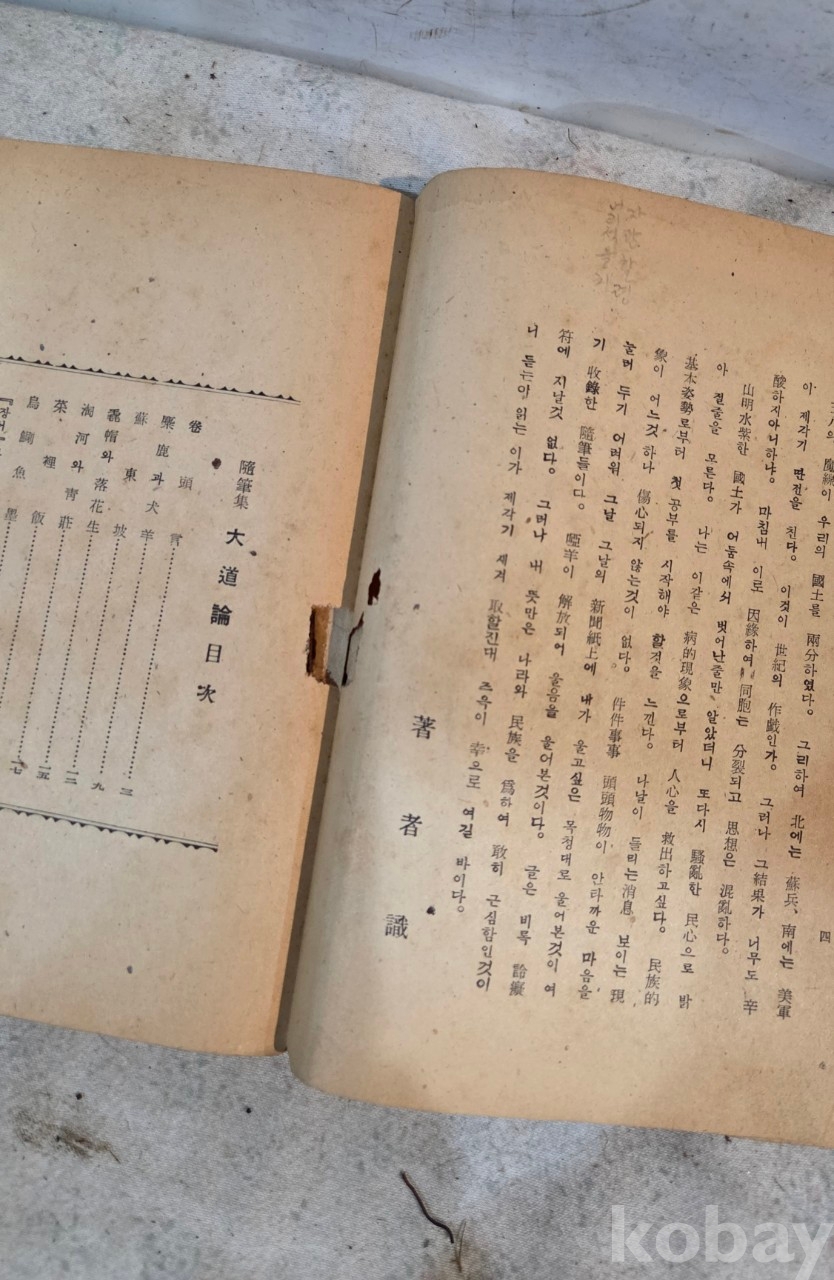 이 제각기 딴전을 친다. 이것이 世紀의 作戱인가. 그러나 그 結果가 너무도 辛
酸하지아니하냐. 마침내 이로 因緣하여 同胞는 分裂되고 思想은 混亂하다.
山明水紫한 國土가 어둠속에서 벗어난줄만 알았더니 또다시 騷亂한 民心으로 밝
아 결줄을 모른다. 나는 이같은 病的現象으로부터 人心을 救出하고싶다. 民族的
基本姿勢로부터 첫공부를 시작해야 할것을 느낀다. 나날이 들리는消息 보이는 現
象이 어느것 하나 傷心되지 않는것이 없다. 件件事事 頭頭物物이 안타까운 마음을
눌러 두기 어려워 그날 그날의 新聞紙上에 내가 울고싶은 목청대로 울어본것이 여
기 收錄한 隨筆들이다. 啞羊이 解放되어 울음을 울어본것이다. 글은 비록 詅癡
符에 지날것 없다. 그러나 내 뜻만은 나라와 民族을 爲하여 敢히 근심함인것이
니 듣는이 읽는 이가 제각기 새겨 取할진대 즈윽이 幸으로 여길 바이다.
著者識
四
隨筆集 大道論目次
卷頭言 三
麋鹿과犬羊 九
蘇東坡 一二
氈帽와落花生 一五
淘河와靑莊 一七
菜裡飯
烏鰂魚墨
kobay